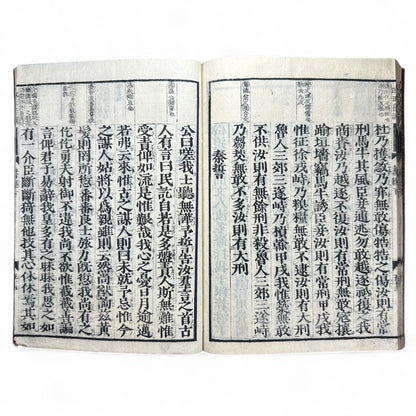 杜乃擭敜乃穽無敢傷牿牿之傷汝則有常
刑馬牛其風臣妾逋逃無敢越逐祗復之我
商賚汝乃越逐不復汝則有常刑無敢寇攘
踰垣墻竊馬牛誘臣妾汝則有常刑甲戌我
惟征徐戎峙乃糗糧無敢不逮汝則有大刑
魯人三郊三遂峙乃楨榦甲戌我惟築無敢
不供汝則有無餘刑非殺魯人三郊三遂峙
乃芻茭無敢不多汝則有大刑
秦誓
公曰嗟我士聽無譁予誓告汝羣言之首古
人有言曰民訖自若是多盤責人斯無難惟
受責俾如流是惟艱哉我心之憂日月逾邁
若弗云來惟古之謀人則曰未就予忌惟今
之謀人姑將以爲親雖則云然尚猷詢茲黃
髮則罔所愆番番良士旅力旣愆我尚有之
仡仡勇夫射御不違我尚不欲惟截截善諞
言俾君子易辭我皇多有之昧昧我思之如
有一介臣斷斷猗無他技其心休休焉其如